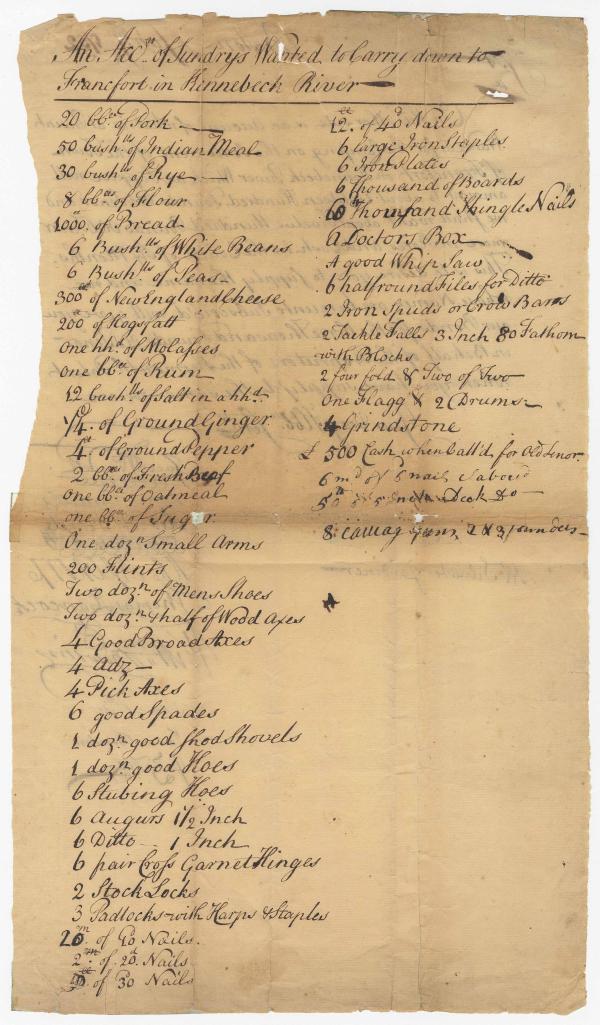 An Acc.t of Sundrys Wanted to Carry down to
Francfort in Kinnebeck River
20 bb.ls of Pork
50 bush.lls of Indian Meal
30 bush.lls of Rye
8 bb.lls of Flour
1000. of Bread
6 Bush.lls of White Beans
6 Bush.lls of Peas
300 of New England Cheese
200 of Hogsfatt
One hh.d of Molasses
One bb.l of Rum
12 bush.lls of Salt in a hh.d
1/4. of Ground Ginger
4. of Ground Pepper
2 bb.lls of Fresh Beef
One bb.l of Oatmeal
One bb.l of Sugar
One doz.n Small Arms
200 Flints
Two doz.n of Mens Shoes
Two doz.n & half of Wood Axes
4 Good Broad Axes
4 Adz
4 Pick Axes
6 good Spades
1 doz.n good Shod Shovels
1 doz.n good Hoes
6 Stubing Hoes
6 Augurs 1 1/2 Inch
6 Ditto 1 Inch
6 pair Cross Garnet Hinges
2 Stock Locks
3 Padlocks with Harps & Staples
20.m of Nails.
2.m of 20.d Nails
of 30 Nails
12. of 40 Nails
6 large Iron Staples
6 Iron Plates
6 Thousand of Boards
Thousand Shingle Nails
A Doctors Box
A good Whip Saw
6 halfround Files for Ditto
2 Iron Spuds or Crow Bars
2 Tackle Falls 3 Inch 80 Fathom
with Blocks
2 four fold & Two of Two
One Flagg & 2 Drums
4 Grindstone
£ 500 Cash when Call'd for Old Tenor.
6 m.d of nails
5 Inch Deck do
8 Guns 2 & 3 pounders